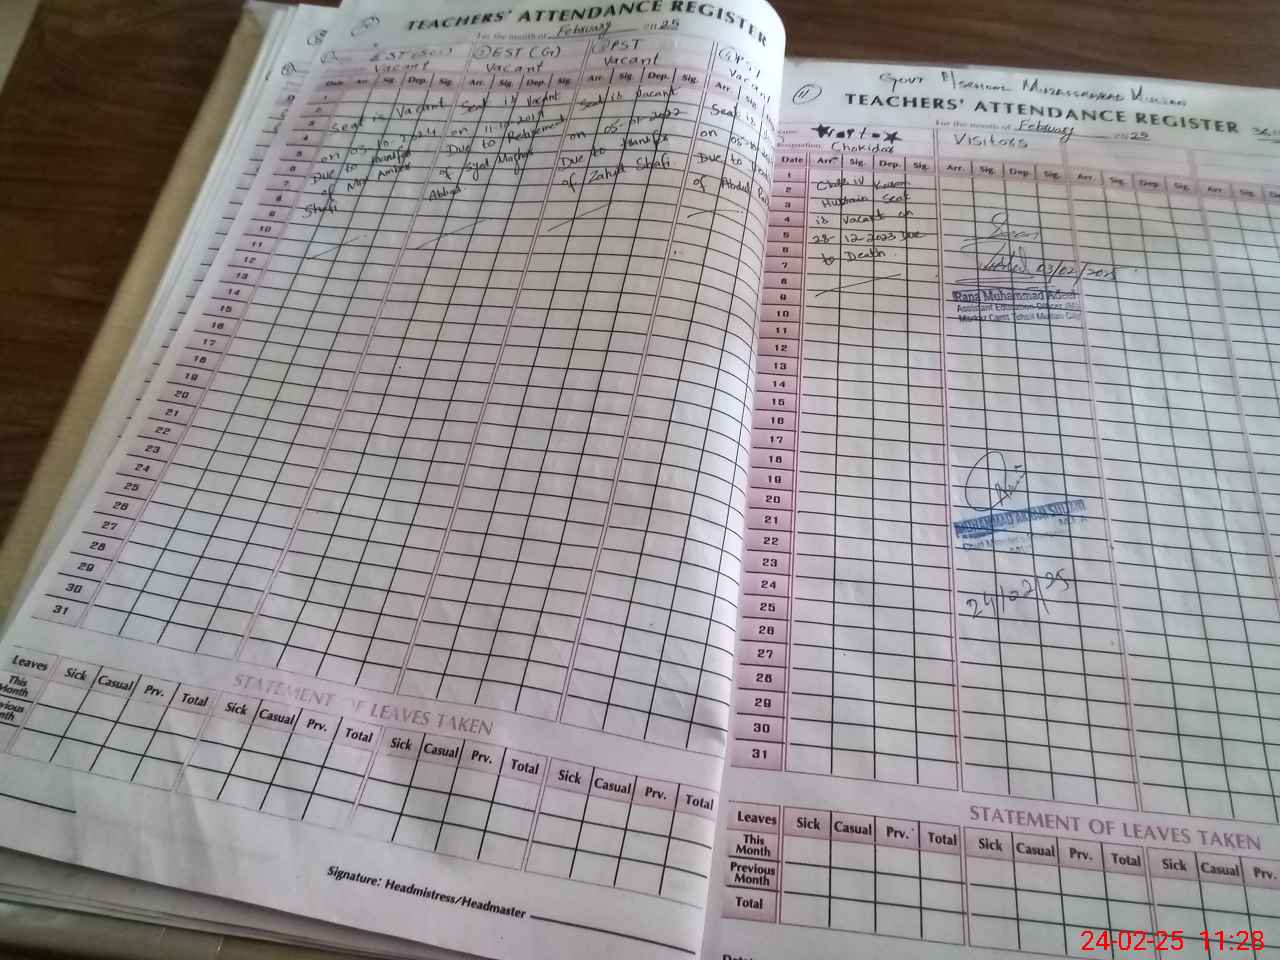 TEACHERS' ATTENDANCE REGISTER
For the month of February 2025
EST (Sci) ② EST (G) ③ PST ④ PST
Vacant Vacant Vacant Vacant
Date Arr. Sig. Dep. Sig. Arr. Sig. Dep. Sig. Arr. Sig. Dep. Sig. Arr. Sig.
Seat is Vacant
on 05-10-2024
Due to transfer
of Mrs Amber
Shafi
Seat is Vacant
on 11-10-2019
Due to Retirement
of Syed Maqbool
Abbas
Seat is Vacant
on 05-01-2022
Due to transfer
of Zahid Shafi.
Seat is
on 05-
Due to
of Abdul
1
2
3
4
5
6
7
8
9
10
11
12
13
14
15
16
17
18
19
20
21
22
23
24
25
26
27
28
29
30
31
STATEMENT OF LEAVES TAKEN
Leaves Sick Casual Prv. Total Sick Casual Prv. Total Sick Casual Prv. Total Sick Casual Prv. Total
This Month
Signature: Headmistress/Headmaster
⑪
Govt P/School Muzaffarabad Multan
TEACHERS' ATTENDANCE REGISTER
For the month of February 2025
Chokidar
Visitors
Date Arr. Sig. Dep. Sig. Arr. Sig. Dep. Sig. Arr. Sig. Dep. Sig. Arr. Sig. Dep.
Class IV
Hussain Seat
is Vacant on
28-12-2023 Due
to Death.
03/02/2025
Rana Muhammad Adeel
Assistant Education Officer
Markaz Cantt Tehsil Multan City
24/02/25
1
2
3
4
5
6
7
8
9
10
11
12
13
14
15
16
17
18
19
20
21
22
23
24
25
26
27
28
29
30
31
STATEMENT OF LEAVES TAKEN
Leaves Sick Casual Prv. Total Sick Casual Prv. Total Sick Casual Prv.
This Month
Previous Month
Total
24-02-25 11:28